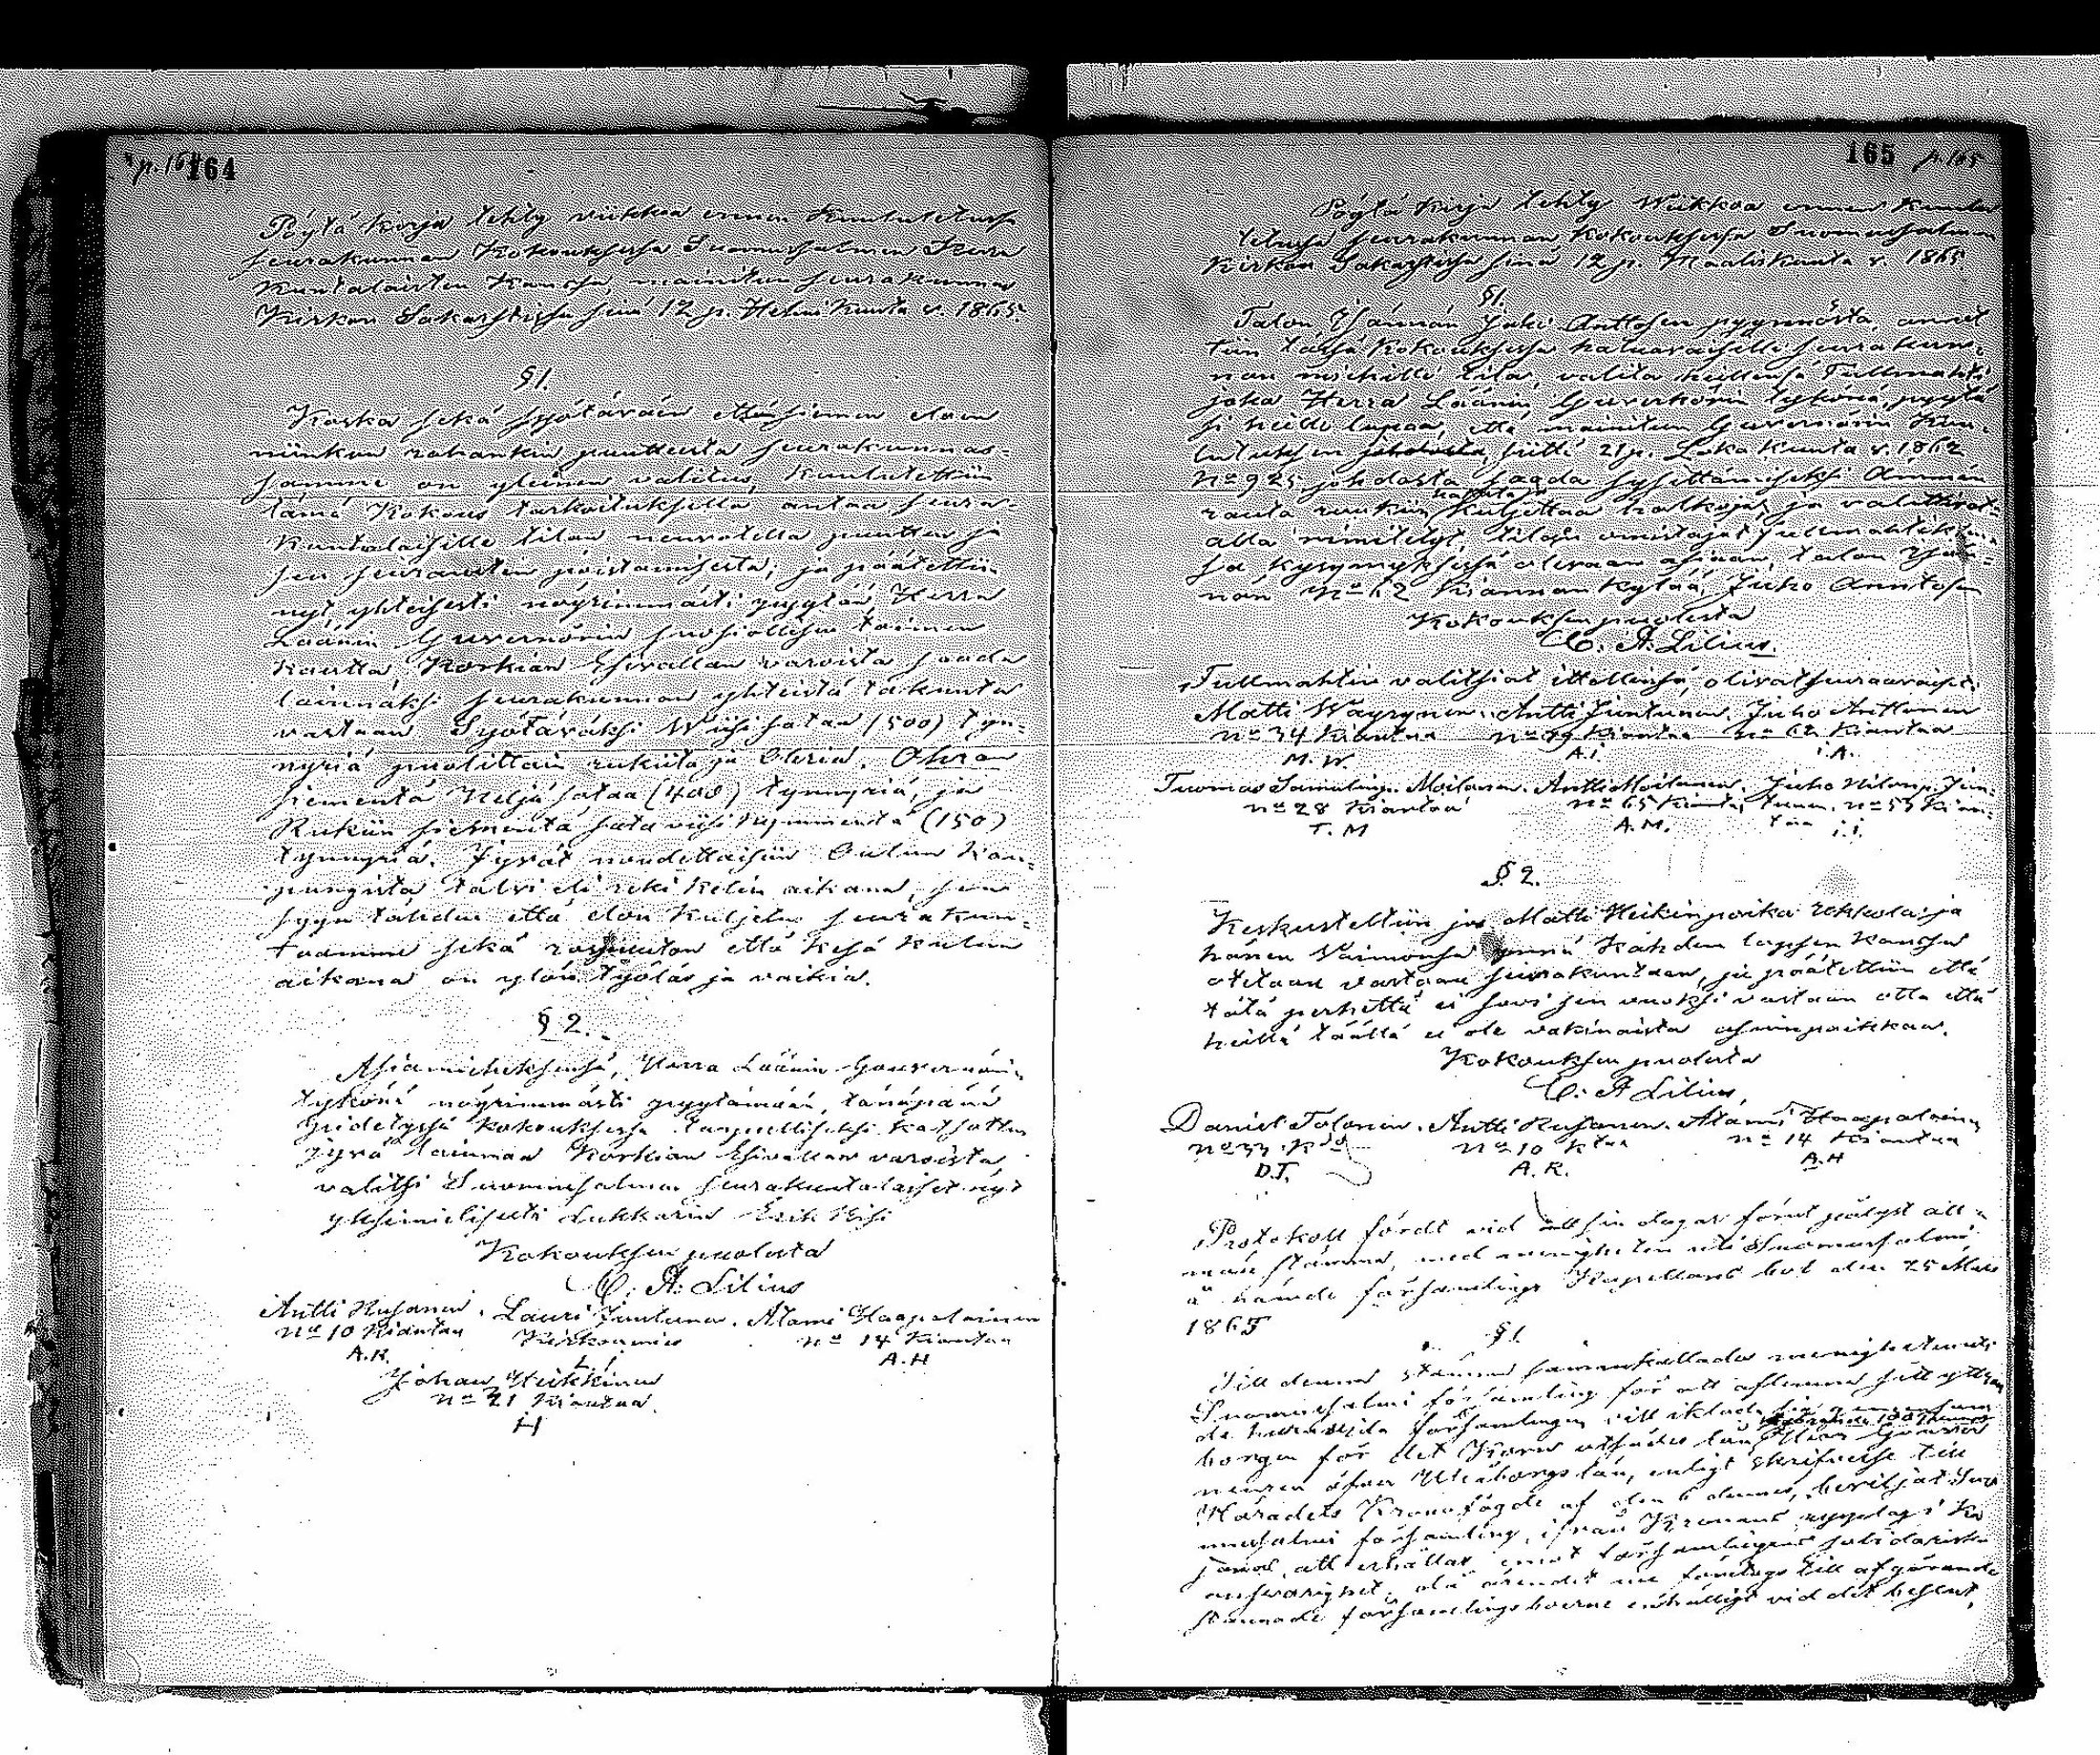 p. 164 164
Pöytä Kirja tehty viikkoa ennen Kuulutetussa
seurakunnan Kokouksessa Suomussalmen Seura
Kuntalaisten kanssa, mainitun seurakunnan
Kirkon Sakastissa sinä 12 p. Helmi Kuuta v. 1865.
§ 1.
Koska sekä syötävän että siemen elon
niinkun rahankin puutteesta seurakunnas-
samme on yleinen valitus, Kuulutettiin
tämä Kokous tarkoituksella antaa seura-
kuntalaisille tilan neuvotella puutten ja
sen seurausten poistamisesta; ja päätettiin
nyt yhteisesti nöyrimmästi pyytää, Herra
Läänin Guvernörin suosiollisen toimen
kautta, Korkian Esivallan varoista saada
lainnaksi seurakunnan yhteistä takuuta
vastaan Syötäväksi Wiisi sataa (500) tyn-
nyriä puolittain rukiita ja Ohria, Ohran
siementä Neljä sataa (400) tynnyriä, ja
Rukiin siementä sata viisi kymmentä (150)
tynnyriä. Jyvät noudettaisiin Oulun kau-
pungista talvi eli reki kelin aikana, sen
syyn tähden että elon kuljetus seurakun-
taamme sekä raspuuton että kesä kulun
aikana on ylön työläs ja vaikia.
§ 2.
Asiamieheksensä, Herra Läänin Gouvernöri
tykönä nöyrimmästi pyytämään, tänäpänä
pidetyssä kokouksessa tarpeelliseksi katsottua
jyvä lainaa Korkian Esivallan varoista,
valitsi Suomussalmen seurakuntalaiset nyt
yksimielisesti Lukkarin Erik
Kokouksen puolesta
C. A. Lilius
Antti Kusanen. Lauri Juntunen. Atami Haapalainen
No 10 Kiantaa Kirkkoumies No 14 Kiantaa
A.K. L. I. A.H
Johan Heikkinen
No 21 Kiantaa.
I-I
165 p. 165
Pöytä Kirja tehty Wiikkoa ennen kuulu
tetussa seurakunnan kokouksessa Suomussalmen
Kirkon Sakastissa sinä 12 p. Maaliskuuta v. 1865.
§1.
Talon Isännän Juho Anttosen pyynnöstä, annet
tiin tässä Kokouksessa haluavaisille seurakun-
nan miehille tila, valita heillensä Fullmahti
joka Herra Läänin Guvernörin tykönä, pyytä
si heille lupaa, että mainitun Guvernörin Kuu-
lutuksen johdosta, siitä 21 p. Lokakuuta v. 1862
No 925 johdosta saada sysittämiseksi Ämmän
rauta ruukiin kuljettaa halkoja; ja valitsivat
alla nimitetyt, tilojen omistajat fullmahtiksensa
sa kysymyksessä olevaan asiaan, talon Isän-
nän No 62 Kiannan kylää, Juho Anntosen
Kokouksen puolesta
C. A. Lilius.
Fullmahtin valitsiat ittellensä, olivat seuraavaiset:
Matti Wäyrynen. Antti Juntunen. Juho Anttonen
No 34 Kiantaa No 49 Kiantaa No 62 Kiantaa
M. W. A.I. I.A.
Tuomas Samulinp. Moilanen. Antti Moilanen. Juho Nilsinp. Jun-
No 28 Kiantaa No 65 Kianta, tunen. No 57 Kian-
T. M A.M. taa I.I.
§ 2.
Keskusteltiin jos Matti Heikinpoika Rekkola ja
hänen Vaimonsa ynnä kahden lapsen kanssa
otetaan vastaan seurakuntaan, ja päätettiin että
tätä perhettä ei sovi sen vuoksi vastaan otta että
heillä täällä ei ole vakinaista asuinpaikkaa.
Kokouksen puolesta
C. A Lilius,
Daniel Tolonen. Antti Kusanen. Atami Haapalainen
No 33 K No 10 Ktaa No 14 Kiantaa
D.T. A. K. A.H
Protokoll fördt vid åtta dagar förut pålyst all-
män stämma, med menigheten uti Suomussalmi
å nämde församlings Kapellans bol den 25 Mars
1865
§ 1.
Till denna stämma sammankallades menigheten uti
Suomussalmi församling för att aflemna sitt yttran
de huruvida församlingen vill ikläda sig gemensam
borgen för det Korns utsädes lån, Herr Guver
neuren öfver Uleåborgs län, enligt skrifvelse till
Häradets Kronofogde af den 6 dennes, beviljat Suo
mussalmi församling, ifrån Kronans upplag i Ka
jana, att erhållas emot församlingens solidariska
ansvarighet; då ärendet nu företogs till afgörande
stannade församlingsboerne enhälligt vid det beslut,